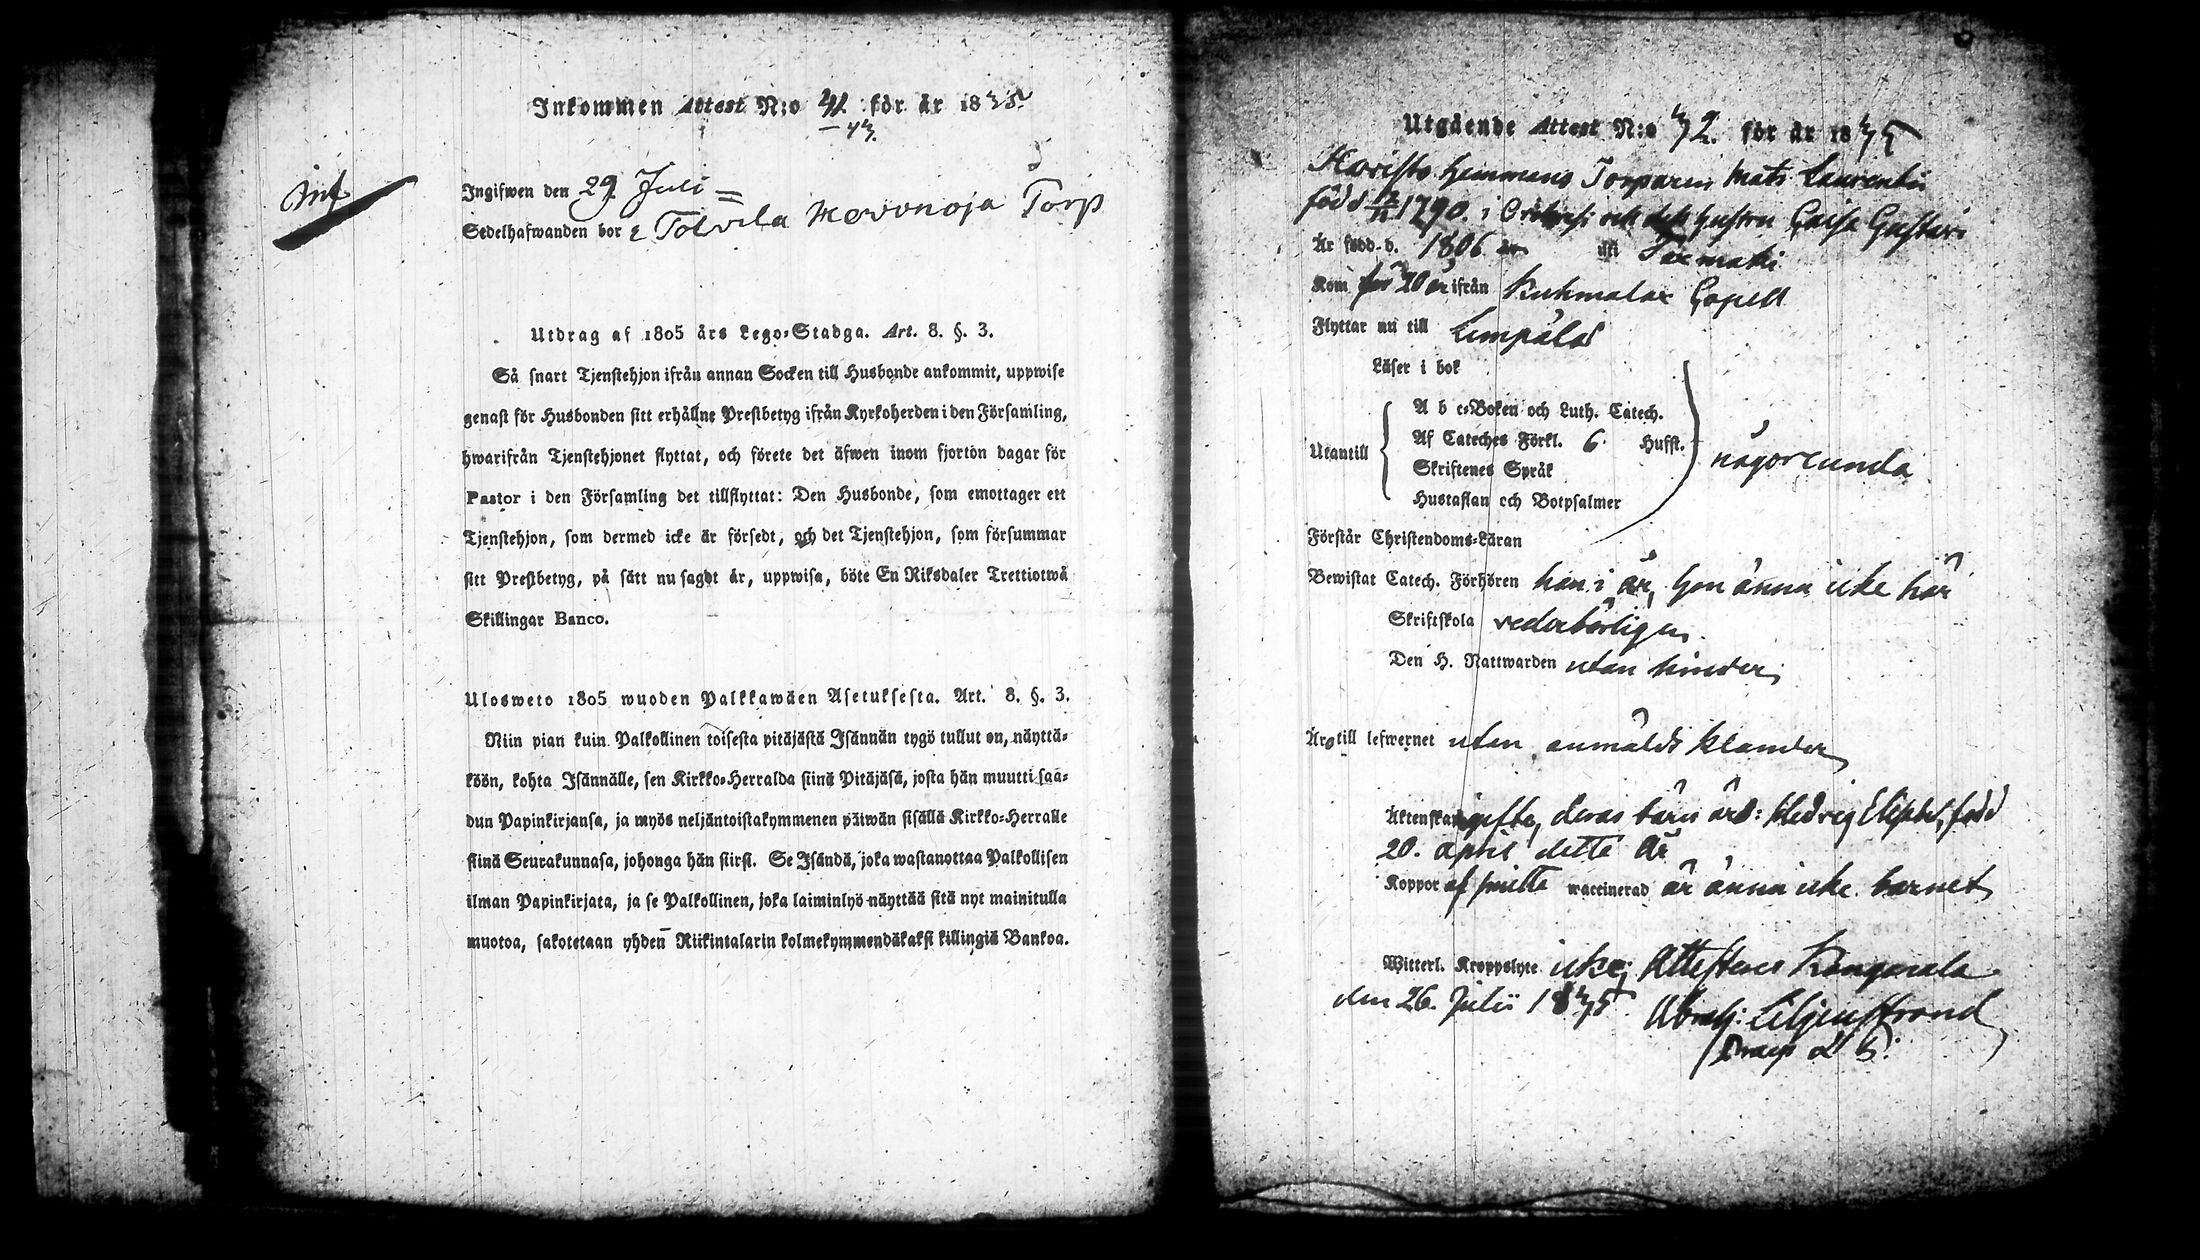 Inkommen Attest N:o 42 för år 1835.
— 43.
Inf
Ingifwen den 29 Juli
Sedelhafwanden bor i Tolvila Mevonoja Torp
Utdrag af 1805 års Lego-Stadga. Art. 8. §. 3.
Så snart Tjenstehjon ifrån annan Socken till Husbonde ankommit, uppwise
genast för Husbonden sitt erhållne Prestbetyg ifrån Kyrkoherden i den Församling,
hwarifrån Tjenstehjonet flyttat, och förete det äfwen inom fjorton dagar för
Pastor i den Församling det tillflyttat: Den Husbonde, som emottager ett
Tjenstehjon, som dermed icke är försedt, och det Tjenstehjon, som försummar
sitt Prestbetyg, på sätt nu sagdt är, uppwisa, böte En Riksdaler Trettiotwå
Skillingar Banco.
Ulosweto 1805 wuoden Palkkawäen Asetuksesta. Art. 8. §. 3.
Niin pian kuin Palkollinen toisesta pitäjästä Isännän tygö tullut on, näyttä-
köön, kohta Isännälle, sen Kirkko-Herralda siinä Pitäjäsä, josta hän muutti saa-
dun Papinkirjansa, ja myös neljäntoistakymmenen päiwän sisällä Kirkko-Herralle
siinä Seurakunnasa, johonga hän siirsi. Se Isändä, joka wastanottaa Palkollisen
ilman Papinkirjata, ja se Palkollinen, joka laiminlyö näyttää sitä nyt mainitulla
muotoa, sakotetaan yhden Riikintalarin kolmekymmendäkaksi killingiä Bankoa.
Utgående Attest N:o 72. för år 1835
Haviste hemmans Torparen Mats Laurentii
född 1790. i Orihvesi och dess hustru Caisa Gustavi
Är född d. 1806 i
Kom för 20 år ifrån Kuhmalax Capell
Flyttar nu till Lempälä
Läser i bok
Utantill
A b c-Boken och Luth. Catech.
Af Cateches Förkl. 6 Hufst.
Skriftenes Språk
Hustaflan och Botpsalmer
någorlunda
Förstår Christendoms-Läran
Bewistat Catech. Förhören han i år, hon änna icke här
Skriftskola vederbörligen.
Den H. Nattwarden utan hinder
Är till lefwernet utan anmäldt klander
Äktenskap gifte, deras barn är: Hedvig Elisabet, född
20. april detta år
Koppor af smitta waccinerad är änna icke barnet
Witterl. Kroppslyte icke; Attesterer Kangasala
den 26. Julii 1835. Abrah: Liljenstrand